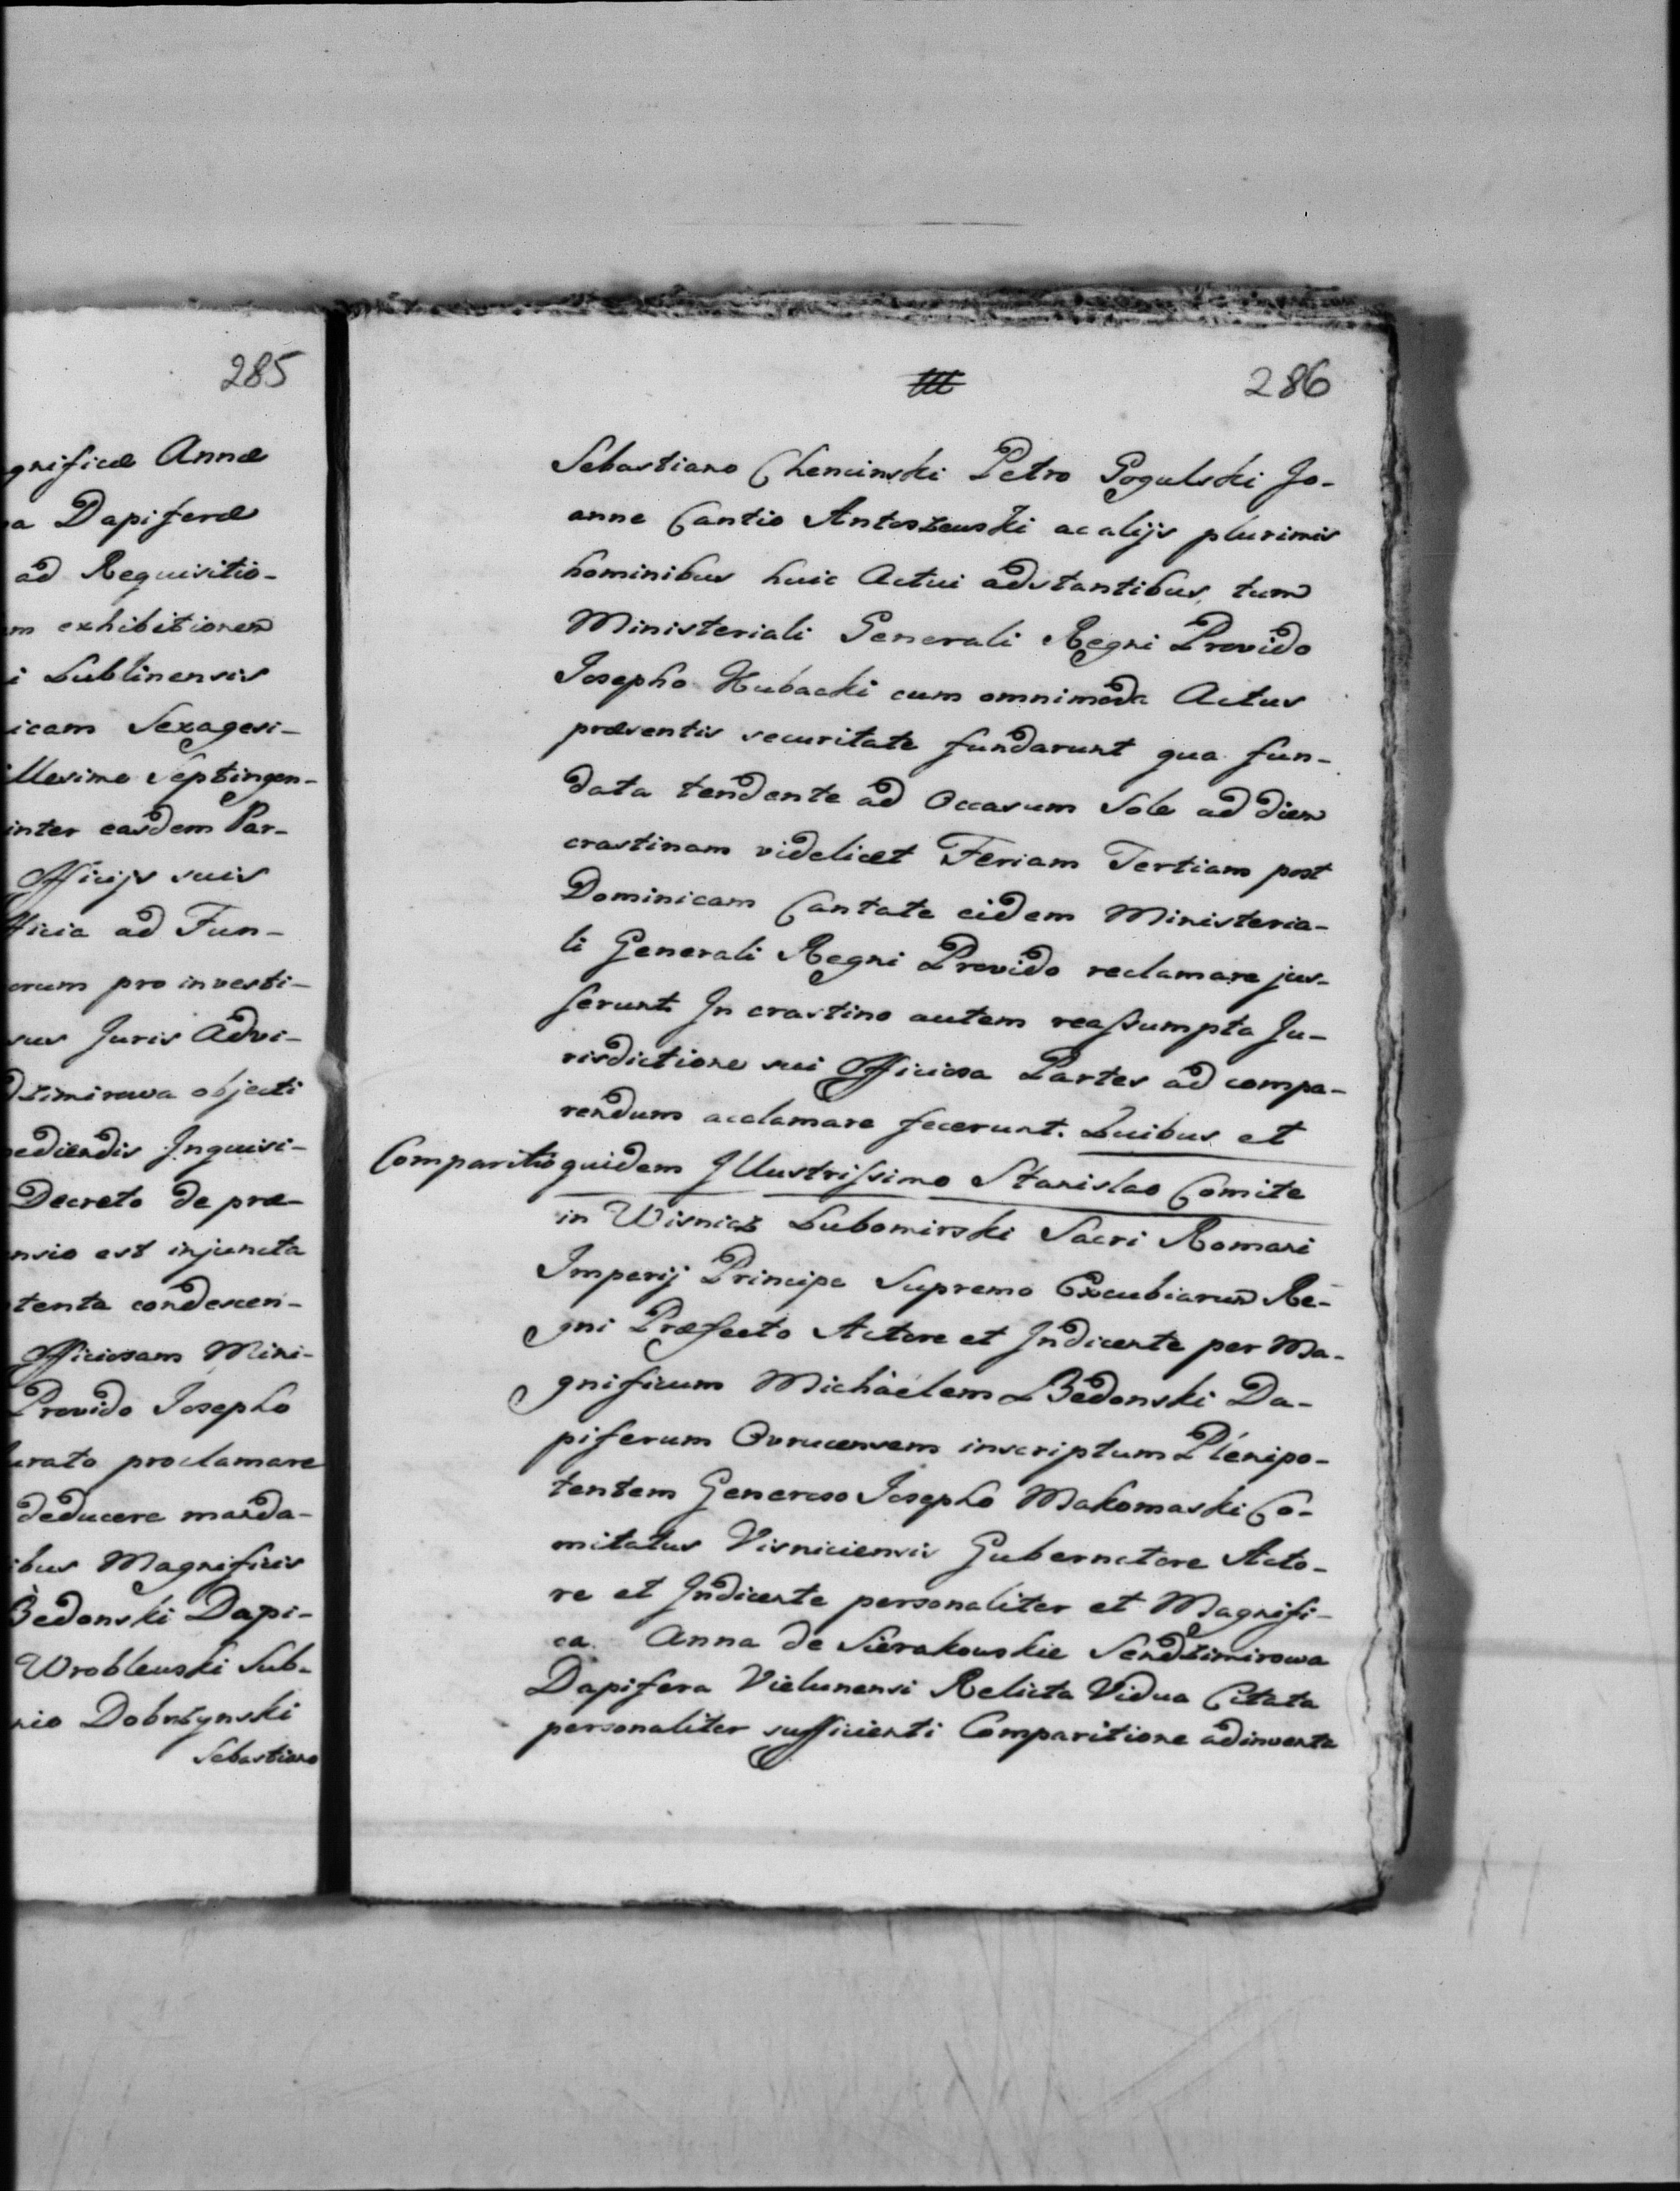 285
gnificæ Annæ
a Dapiferæ
ad Requisitio-
m exhibitionem
i Lublinensis
icam Sexagesi-
illesimo Septingen-
inter easdem Par-
Officijs suis
fficia ad Fun-
orum pro investi-
sus Juris Advi-
dzimirowa objecti
pediendis Inquisi-
Decreto de præ-
ensio est injuncta
tenta condescen-
Officiosam Mini-
Provido Josepho
urato proclamare
deducere manda-
ibus Magnificis
Bedonski Dapi-
Wroblewski Sub-
nio Dobrzynski
Sebastiano
286
Sebastiano Chencinski Petro Gogulski Jo-
anne Cantio Antoszewski ac alijs plurimis
hominibus huic Actui adstantibus, tum
Ministeriali Generali Regni Provido
Josepho Hubacki cum omnimoda Actus
præsentis securitate fundarunt qua fun-
data tendente ad Occasum Sole ad diem
crastinam videlicet Feriam Tertiam post
Dominicam Cantate eidem Ministeria-
li Generali Regni Provido reclamare jus-
serunt. In crastino autem reassumpta Ju-
risdictione sui Officiosa Partes ad compa-
rendum acclamare fecerunt. Quibus et
Comparitio quidem Illustrissimo Stanislao Comite
in Wisnicz Lubomirski Sacri Romani
Imperij Principe Supremo Excubiarum Re-
gni Præfecto Actore et Indicente per Ma-
gnificum Michäelem Bedonski Da-
piferum Ovrucensem inscriptum Plenipo-
tentem Generoso Josepho Makomaski Co-
mitatus Visniciensis Gubernatore Acto-
re et Indicente personaliter et Magnifi-
ca Anna de Sierakowskie Sendzimirowa
Dapifera Vielunensi Relicta Vidua Citata
personaliter sufficienti Comparitione adinventa